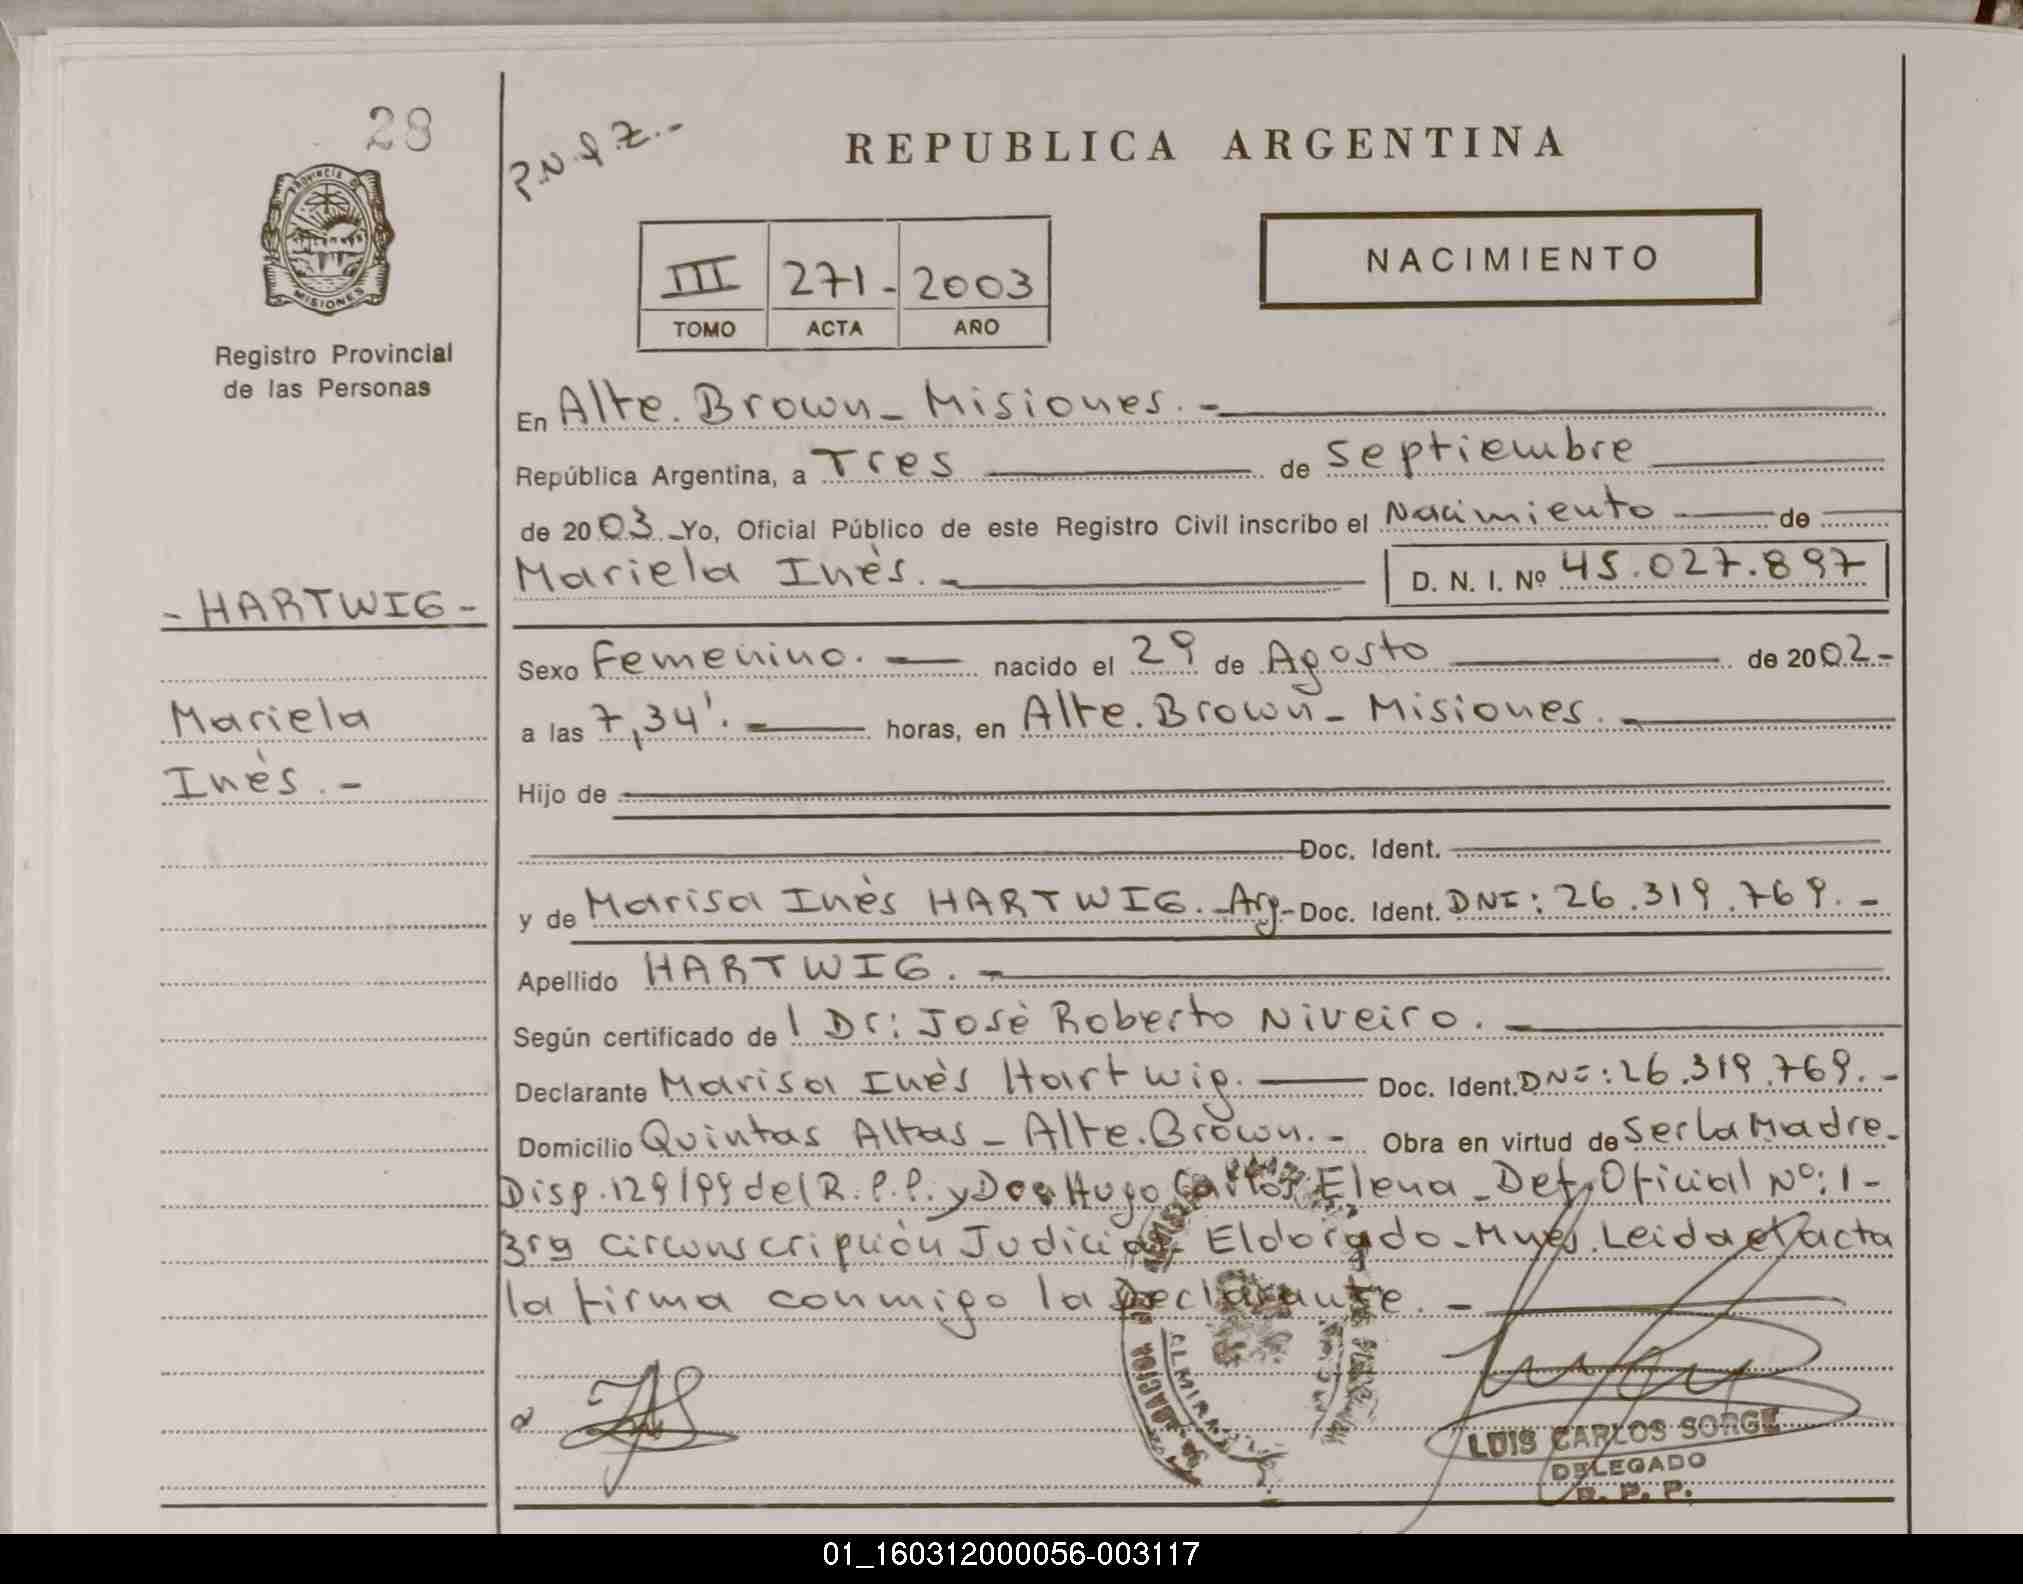 28
P.N.y Z.-
REPUBLICA ARGENTINA
PROVINCIA DE
MISIONES
III 271- 2003
TOMO ACTA AÑO
NACIMIENTO
Registro Provincial
de las Personas
En Alte. Brown - Misiones.-
República Argentina, a Tres de septiembre
de 2003. Yo, Oficial Público de este Registro Civil inscribo el Nacimiento de
Mariela Inés.- D. N. I. Nº 45.027.897
- HARTWIG -
Sexo Femenino. nacido el 29 de Agosto de 2002-
Mariela
a las 7,34'. horas, en Alte. Brown - Misiones.-
Inés.-
Hijo de
Doc. Ident.
y de Marisa Inés HARTWIG.-Arg- Doc. Ident. DNI: 26.319.769.-
Apellido HARTWIG.-
Según certificado de l Dr: José Roberto Niveiro.-
Declarante Marisa Inés Hartwig. Doc. Ident. DNI: 26.319.769.-
Domicilio Quintas Altas - Alte. Brown.- Obra en virtud de Ser la Madre-
Disp. 129/99 del R.P.P. y Hugo Carlos Elena - Def. Oficial Nº: 1-
3ra circunscripción Judicial Eldorado - Mnes. Leida el acta
la firma conmigo la Declarante.-
LUIS CARLOS SORGE
DELEGADO
R. P. P.
01_160312000056-003117